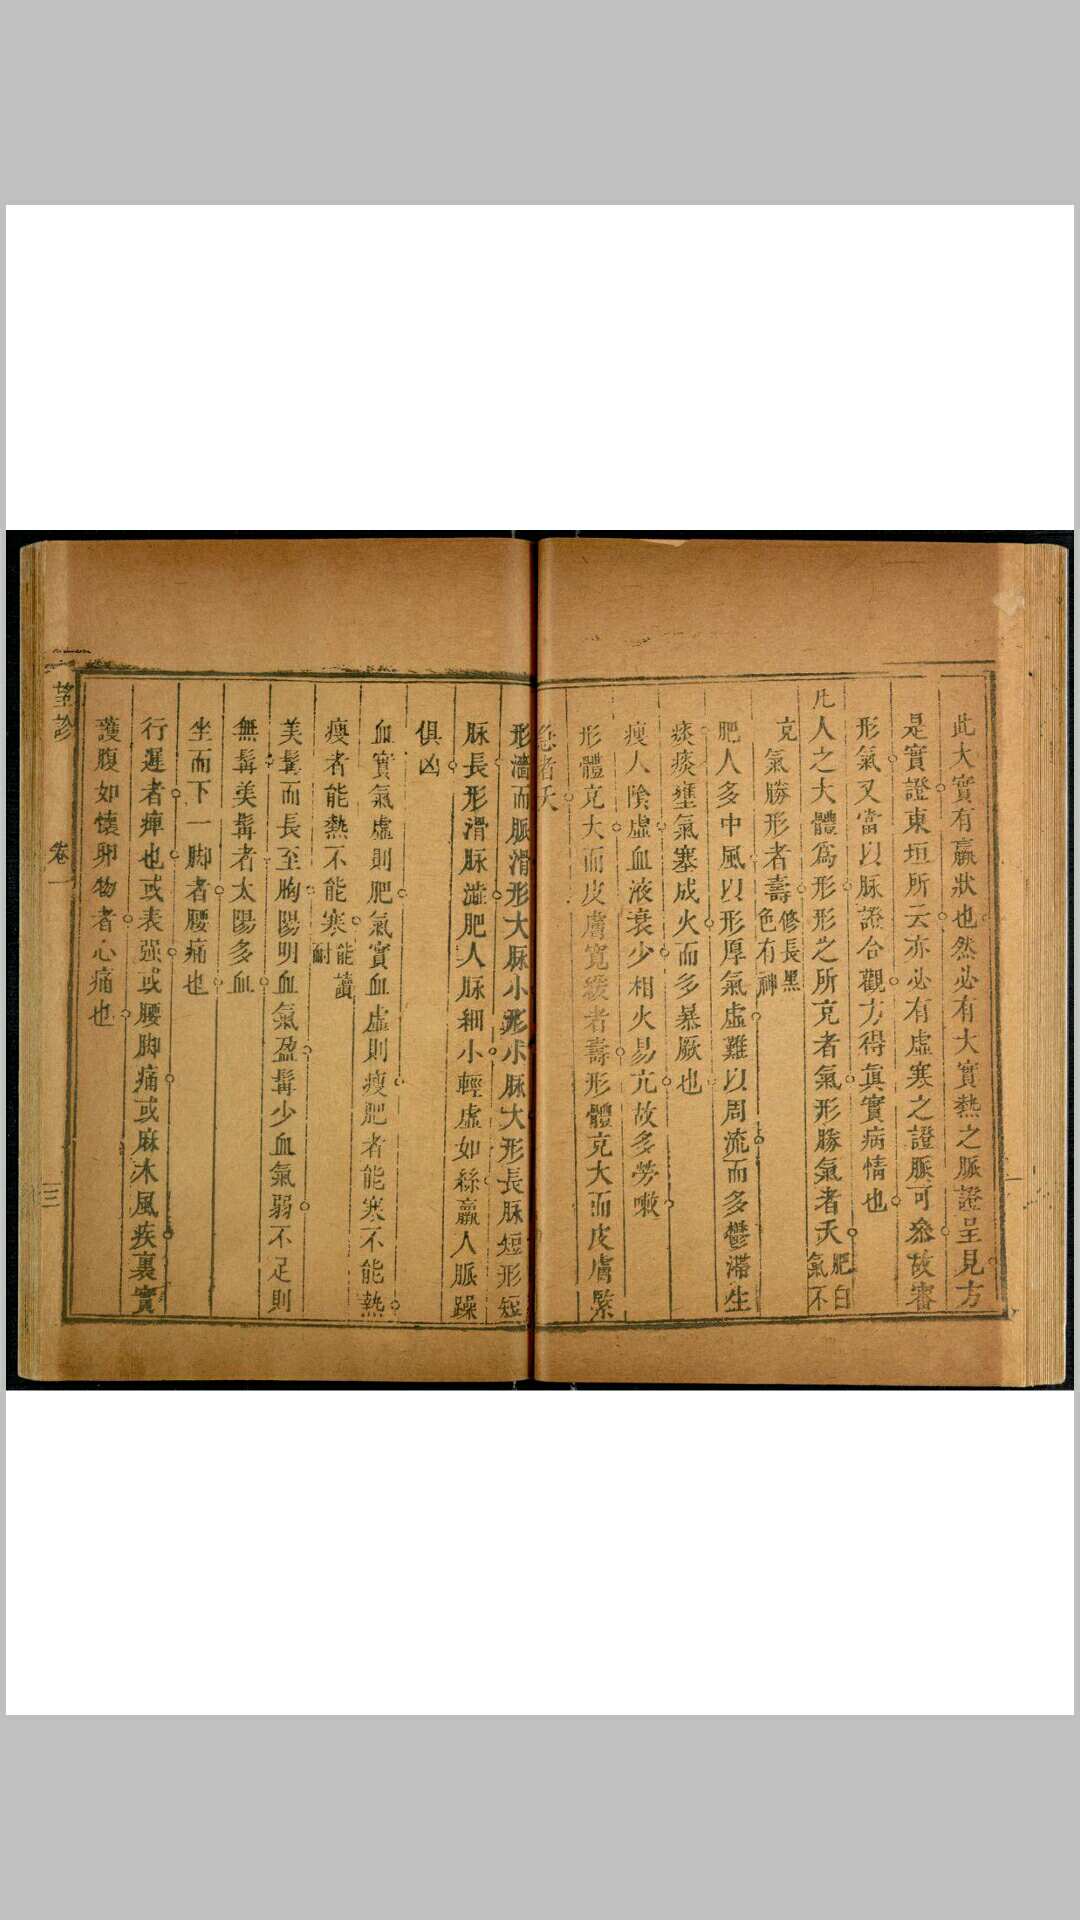 此大實有羸狀也然必有大實熱之脈證呈見方
是實證東垣所云亦必有虛寒之證脈可叅故審
形氣又當以脉證合觀方得眞實病情也
凡人之大體爲形形之所充者氣形勝氣者夭肥白氣不
充氣勝形者壽修長黑色有神
肥人多中風以形厚氣虛難以周流而多鬱滯生
痰痰壅氣塞成火而多暴厥也
瘦人陰虛血液衰少相火易亢故多勞嗽
形體充大而皮膚寬緩者壽形體充大而皮膚緊
急者夭
形濇而脈滑形大脉小形小脉大形長脉短形短
脉長形滑脉濇肥人脉細小輕虛如絲羸人脈躁
俱凶
血實氣虛則肥氣實血虛則瘦肥者能寒不能熱
瘦者能熱不能寒能讀耐
美髯而長至胸陽明血氣盈髯少血氣弱不足則
無髯美髯者太陽多血
坐而下一脚者腰痛也
行遲者痺也或表强或腰脚痛或麻木風疾裏實
護腹如懷卵物者心痛也
望診 卷一 三